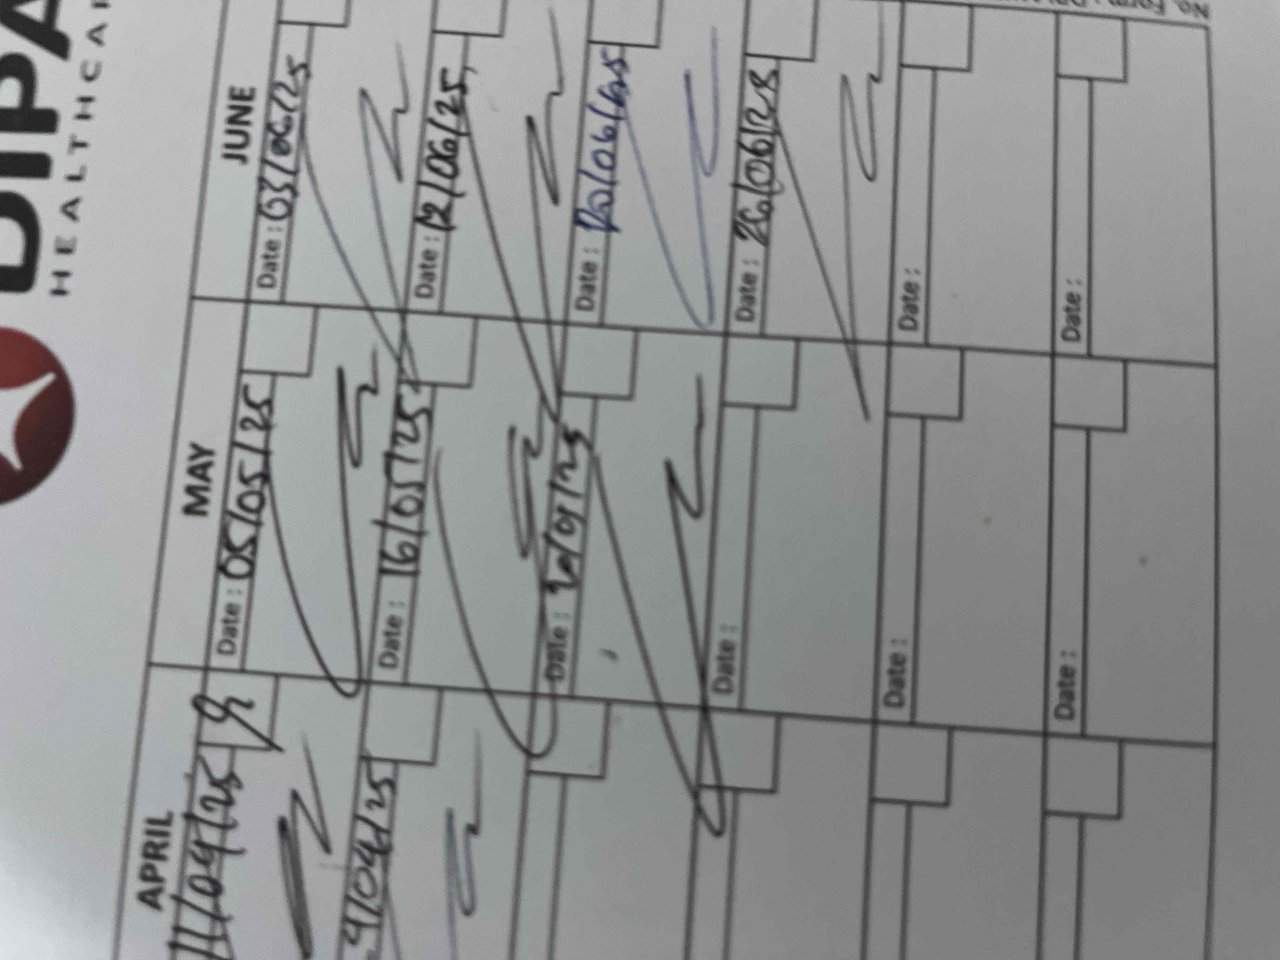 DIPA
HEALTHCAR
No. Form :
APRIL
MAY
JUNE
11/04/25
Date : 05/05/25
Date : 03/06/25
Date : 16/05/25
Date : 12/06/25
Date :
Date : 20/06/25
Date :
Date : 26/06/25
Date :
Date :
Date :
Date :